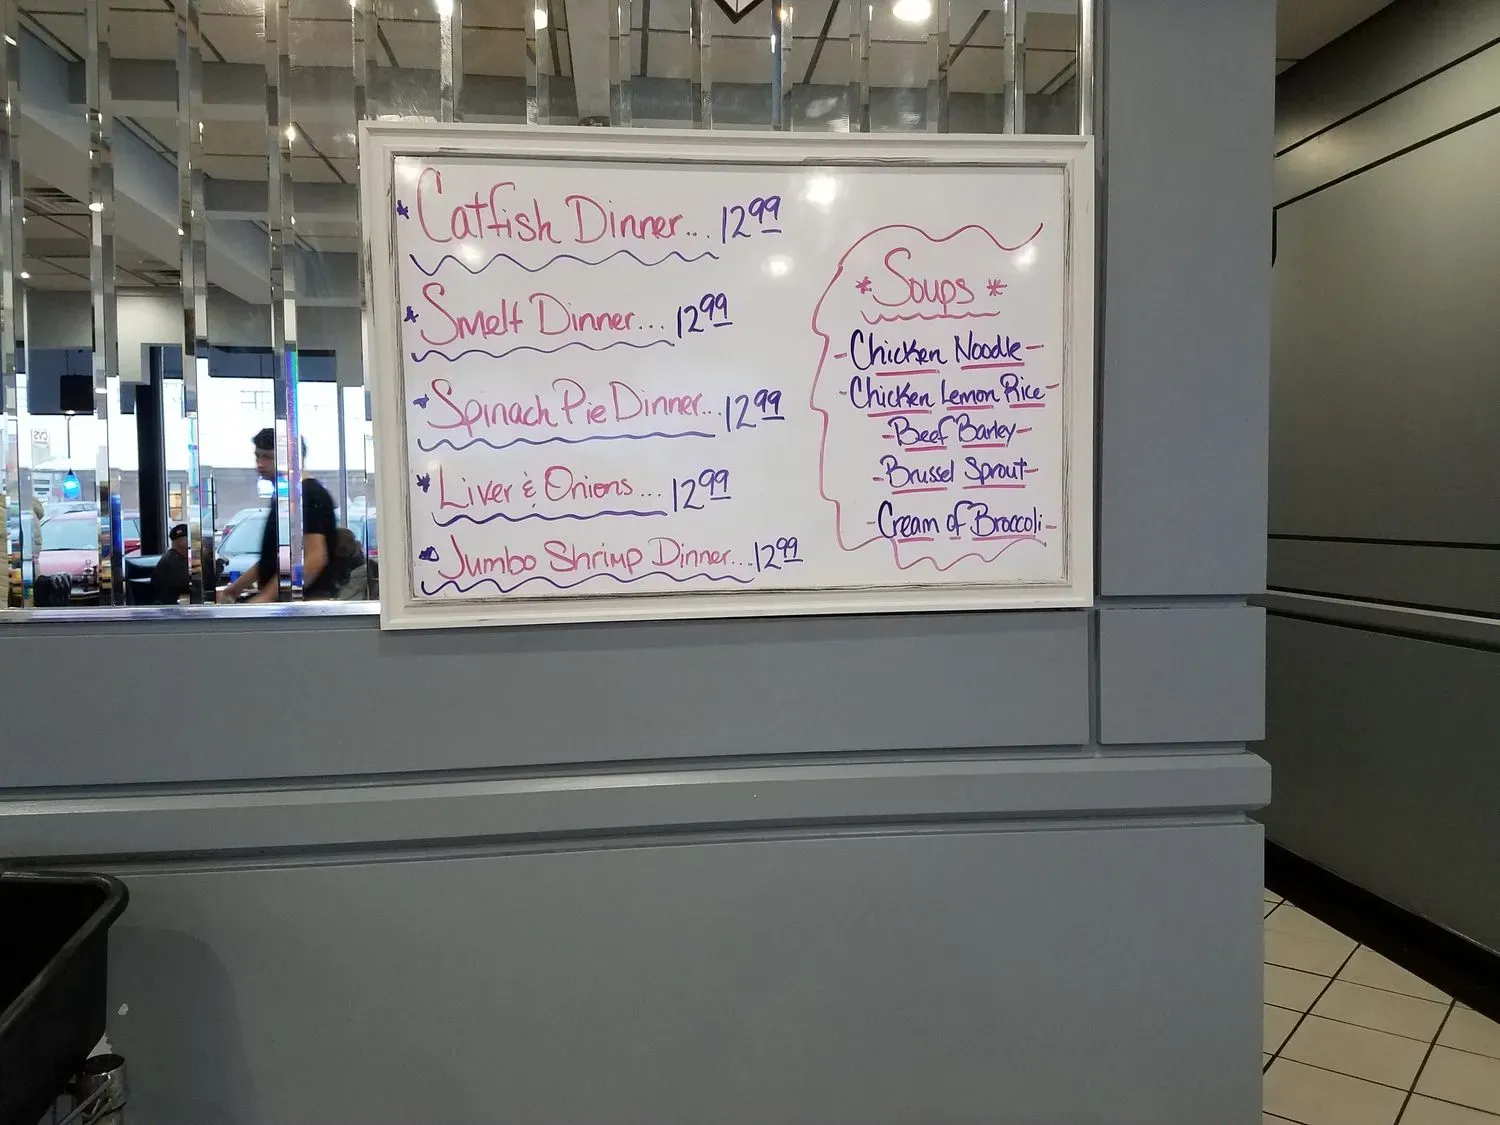 * Catfish Dinner... 12.99
* Smelt Dinner... 12.99
* Spinach Pie Dinner... 12.99
* Liver & Onions... 12.99
* Jumbo Shrimp Dinner... 12.99
* Soups *
- Chicken Noodle -
- Chicken Lemon Rice -
- Beef Barley -
- Brussel Sprout -
- Cream of Broccoli -